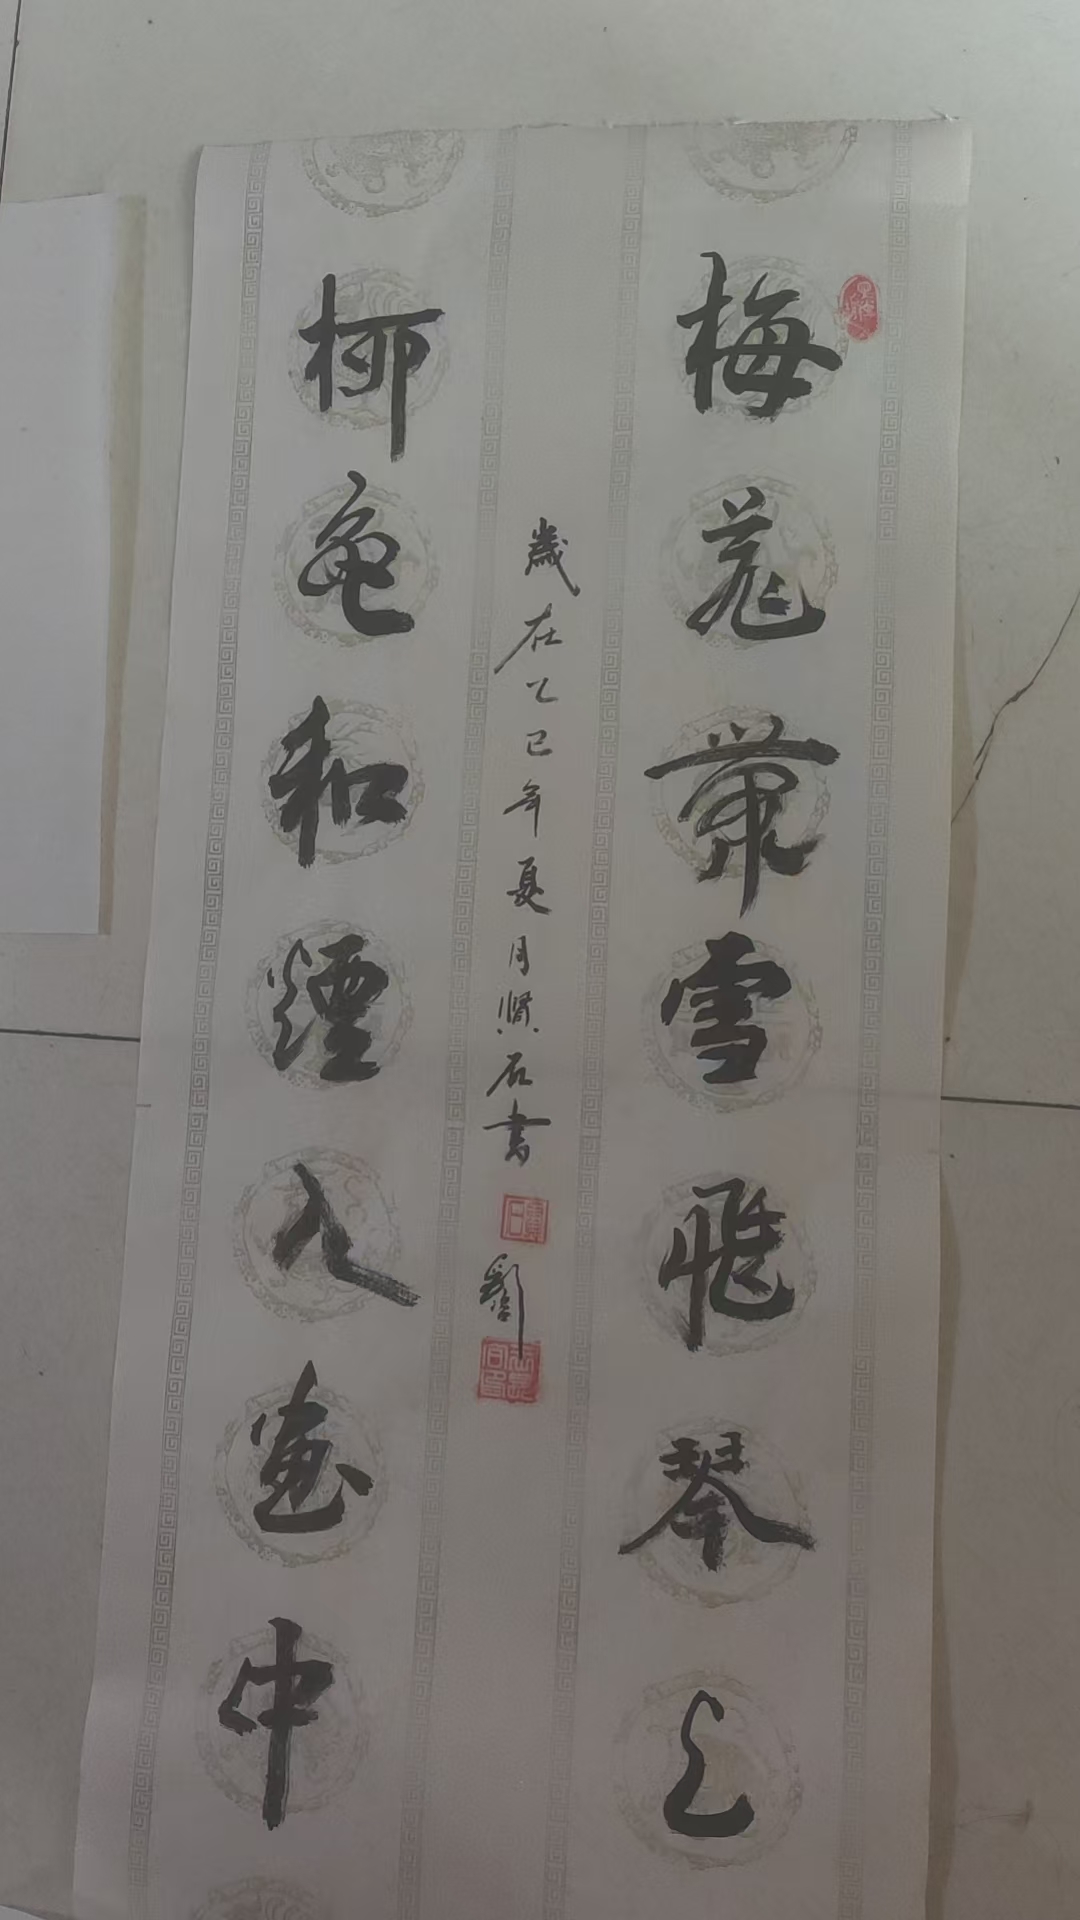 梅花带雪飞琴上
歲在乙巳年夏月
石書
柳色和煙入画中